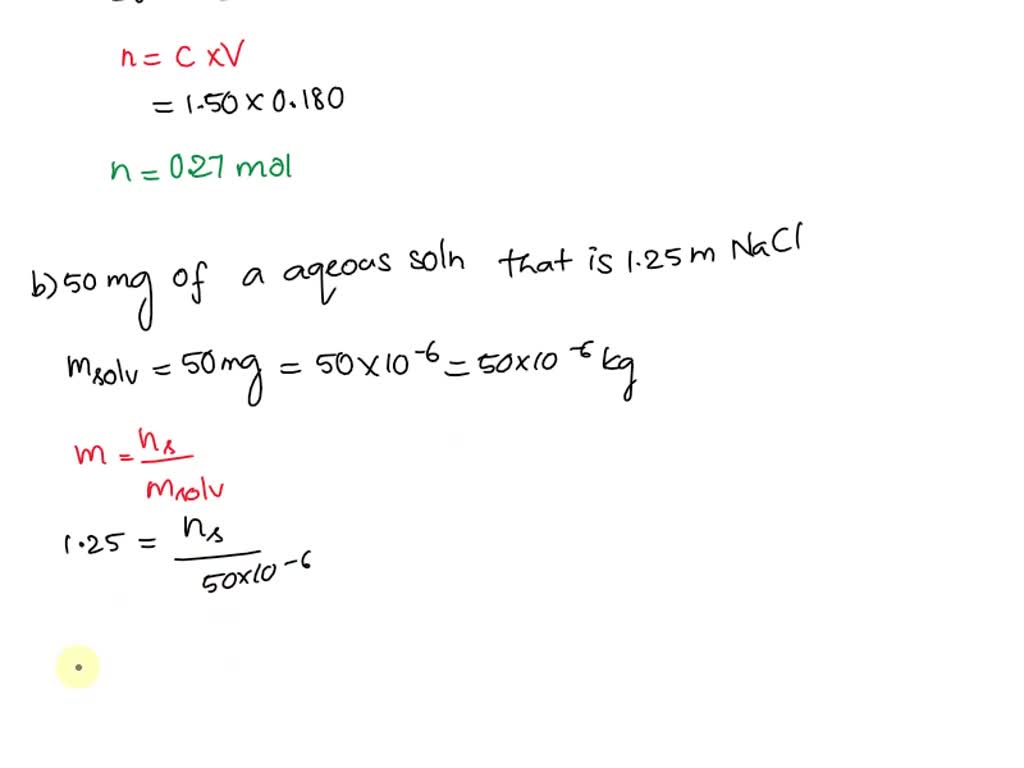 n = C x V
= 1.50 x 0.180
n = 0.27 mol
b) 50 mg of a aqeous soln that is 1.25 m NaCl
msolv = 50 mg = 50 x 10^-6 = 50 x 10^-6 kg
m = ns / msolv
1.25 = ns / 50 x 10^-6